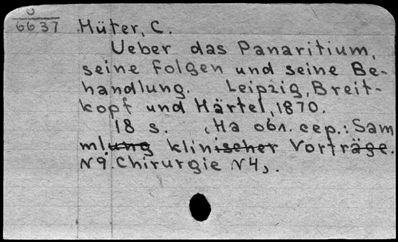 6637
Hüter, C.
Ueber das Panaritium,
seine Folgen und seine Be-
handlung. Leipzig, Breit-
kopf und Härtel, 1870.
18 s. , На обл. сер.: Sam
mlung klinischer Vorträge.
N9. Chirurgie N4,.